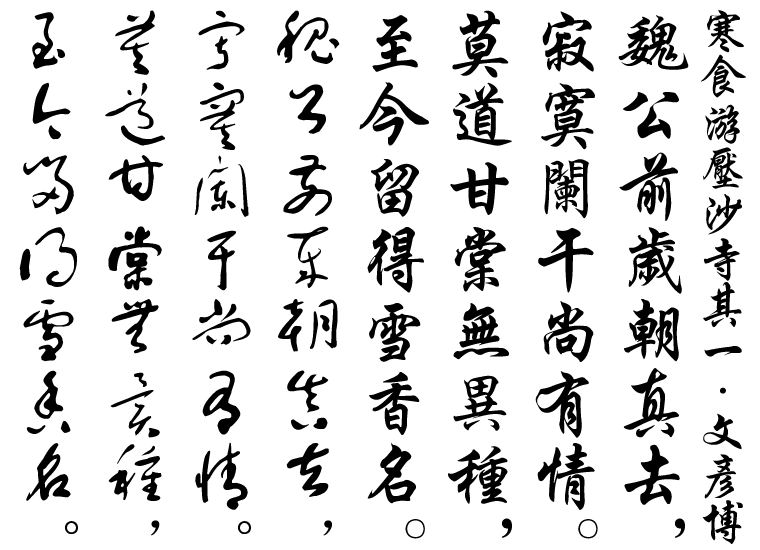 寒食游壓沙寺其一·文彥博
魏公前歲朝真去，
寂寞闌干尚有情。
莫道甘棠無異種，
至今留得雪香名。
魏公前歲朝真去，
寂寞闌干尚有情。
莫道甘棠無異種，
至今留得雪香名。